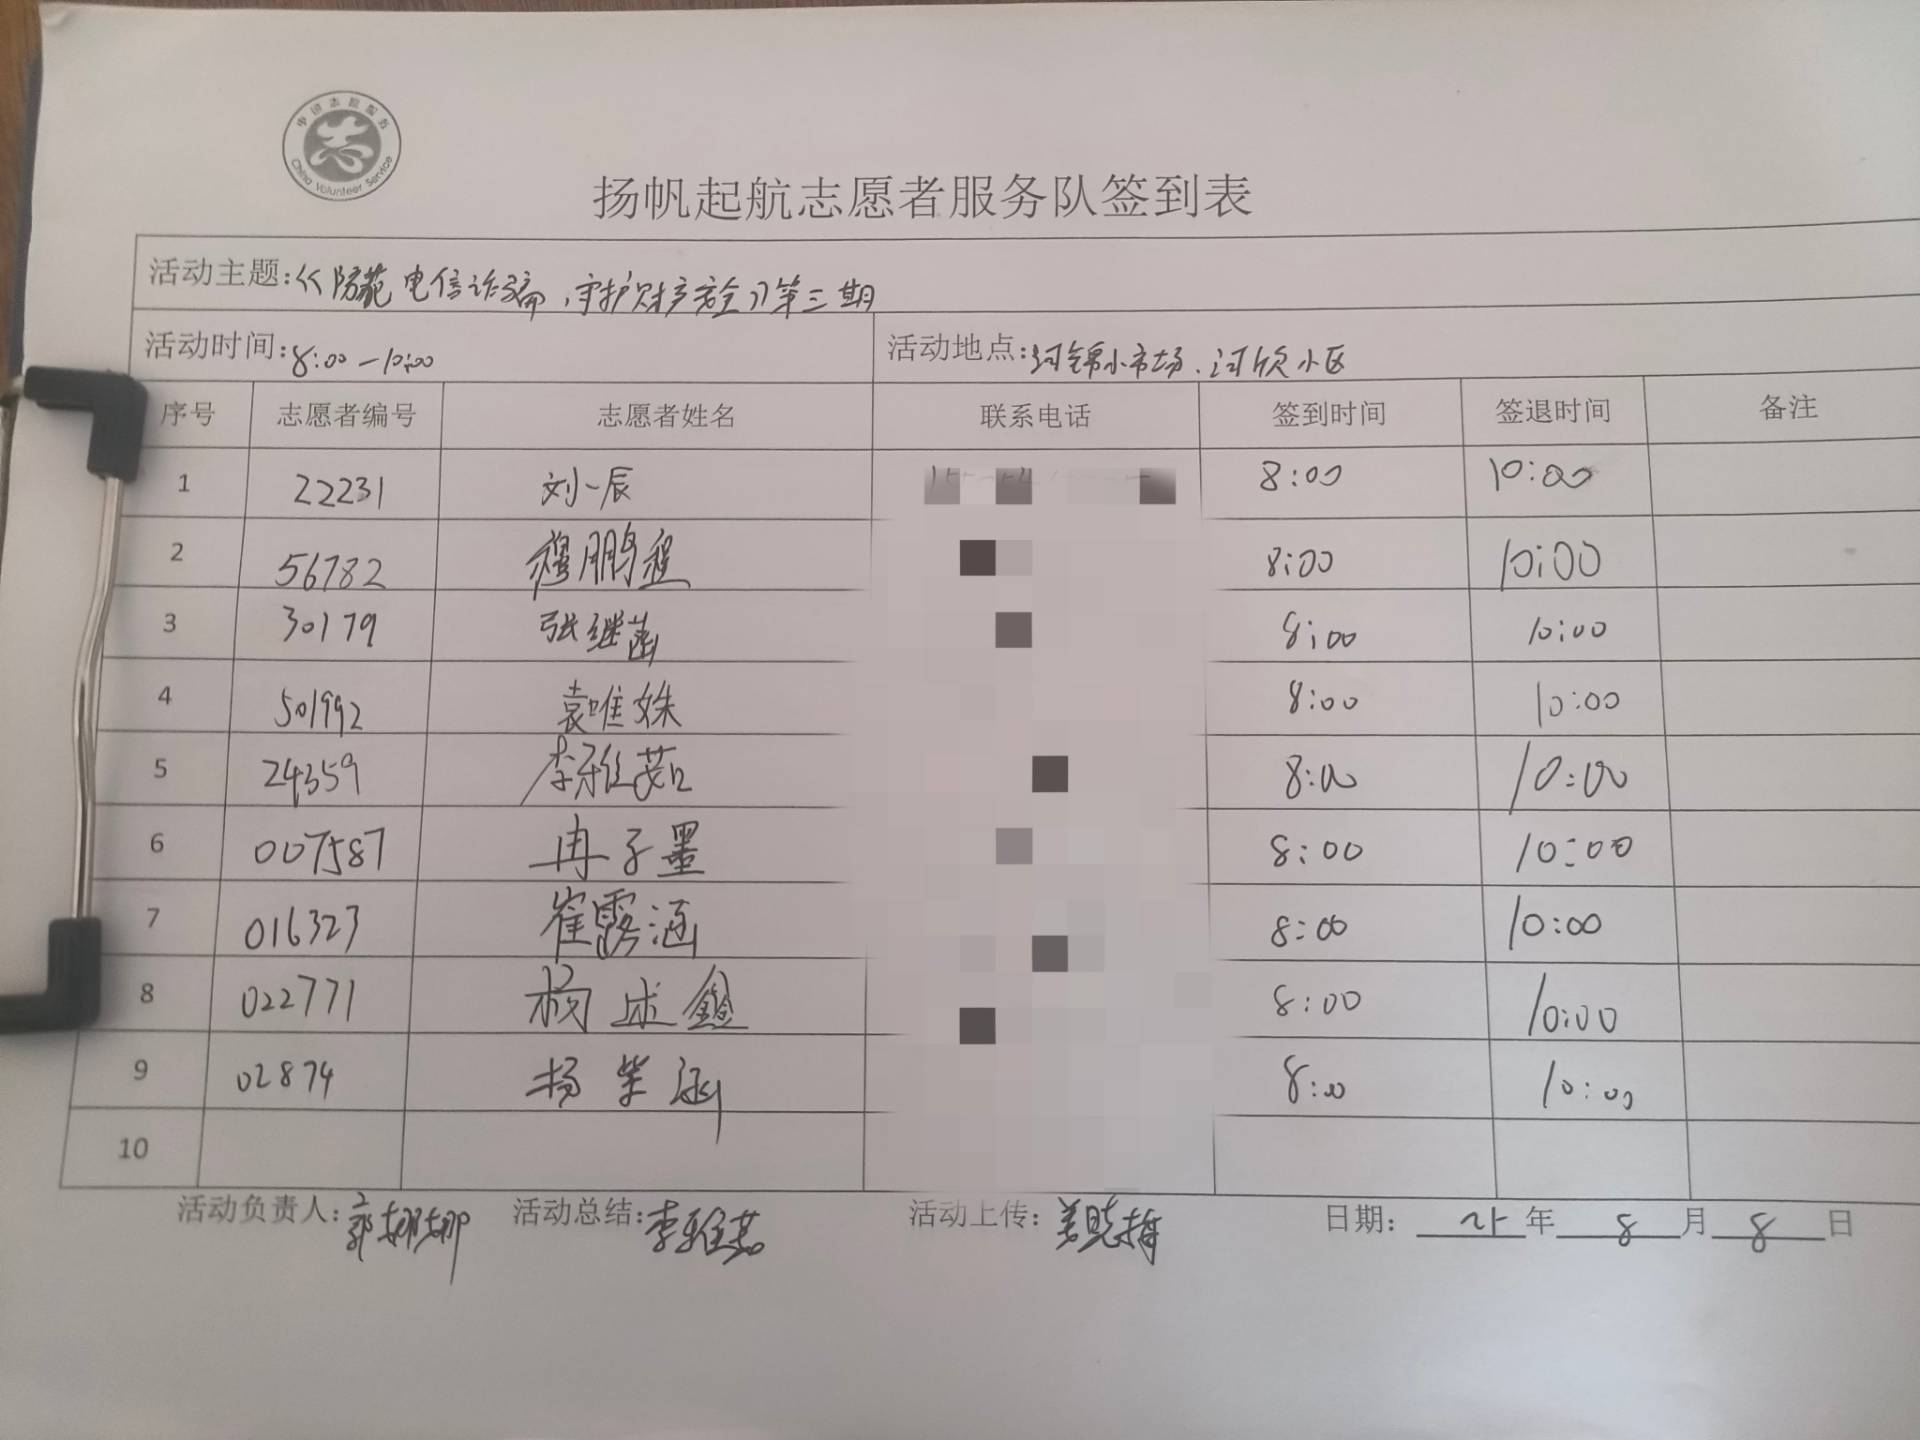 中国志愿服务
China Volunteer Service
扬帆起航志愿者服务队签到表
活动主题:《防范电信诈骗,守护财产安全》第三期
活动时间:8:00-10:00 活动地点:河锦小市场、河欣小区
序号 志愿者编号 志愿者姓名 联系电话 签到时间 签退时间 备注
1 22231 刘一辰 8:00 10:00
2 56782 穆鹏程 8:00 10:00
3 30179 张继菡 8:00 10:00
4 501992 袁唯姝 8:00 10:00
5 24359 李雅茹 8:00 10:00
6 007587 冉子墨 8:00 10:00
7 016323 崔露涵 8:00 10:00
8 022771 杨述鑫 8:00 10:00
9 02874 杨紫涵 8:00 10:00
10
活动负责人:郭娜娜 活动总结:李雅茹 活动上传:姜晓梅 日期: 25年8月8日